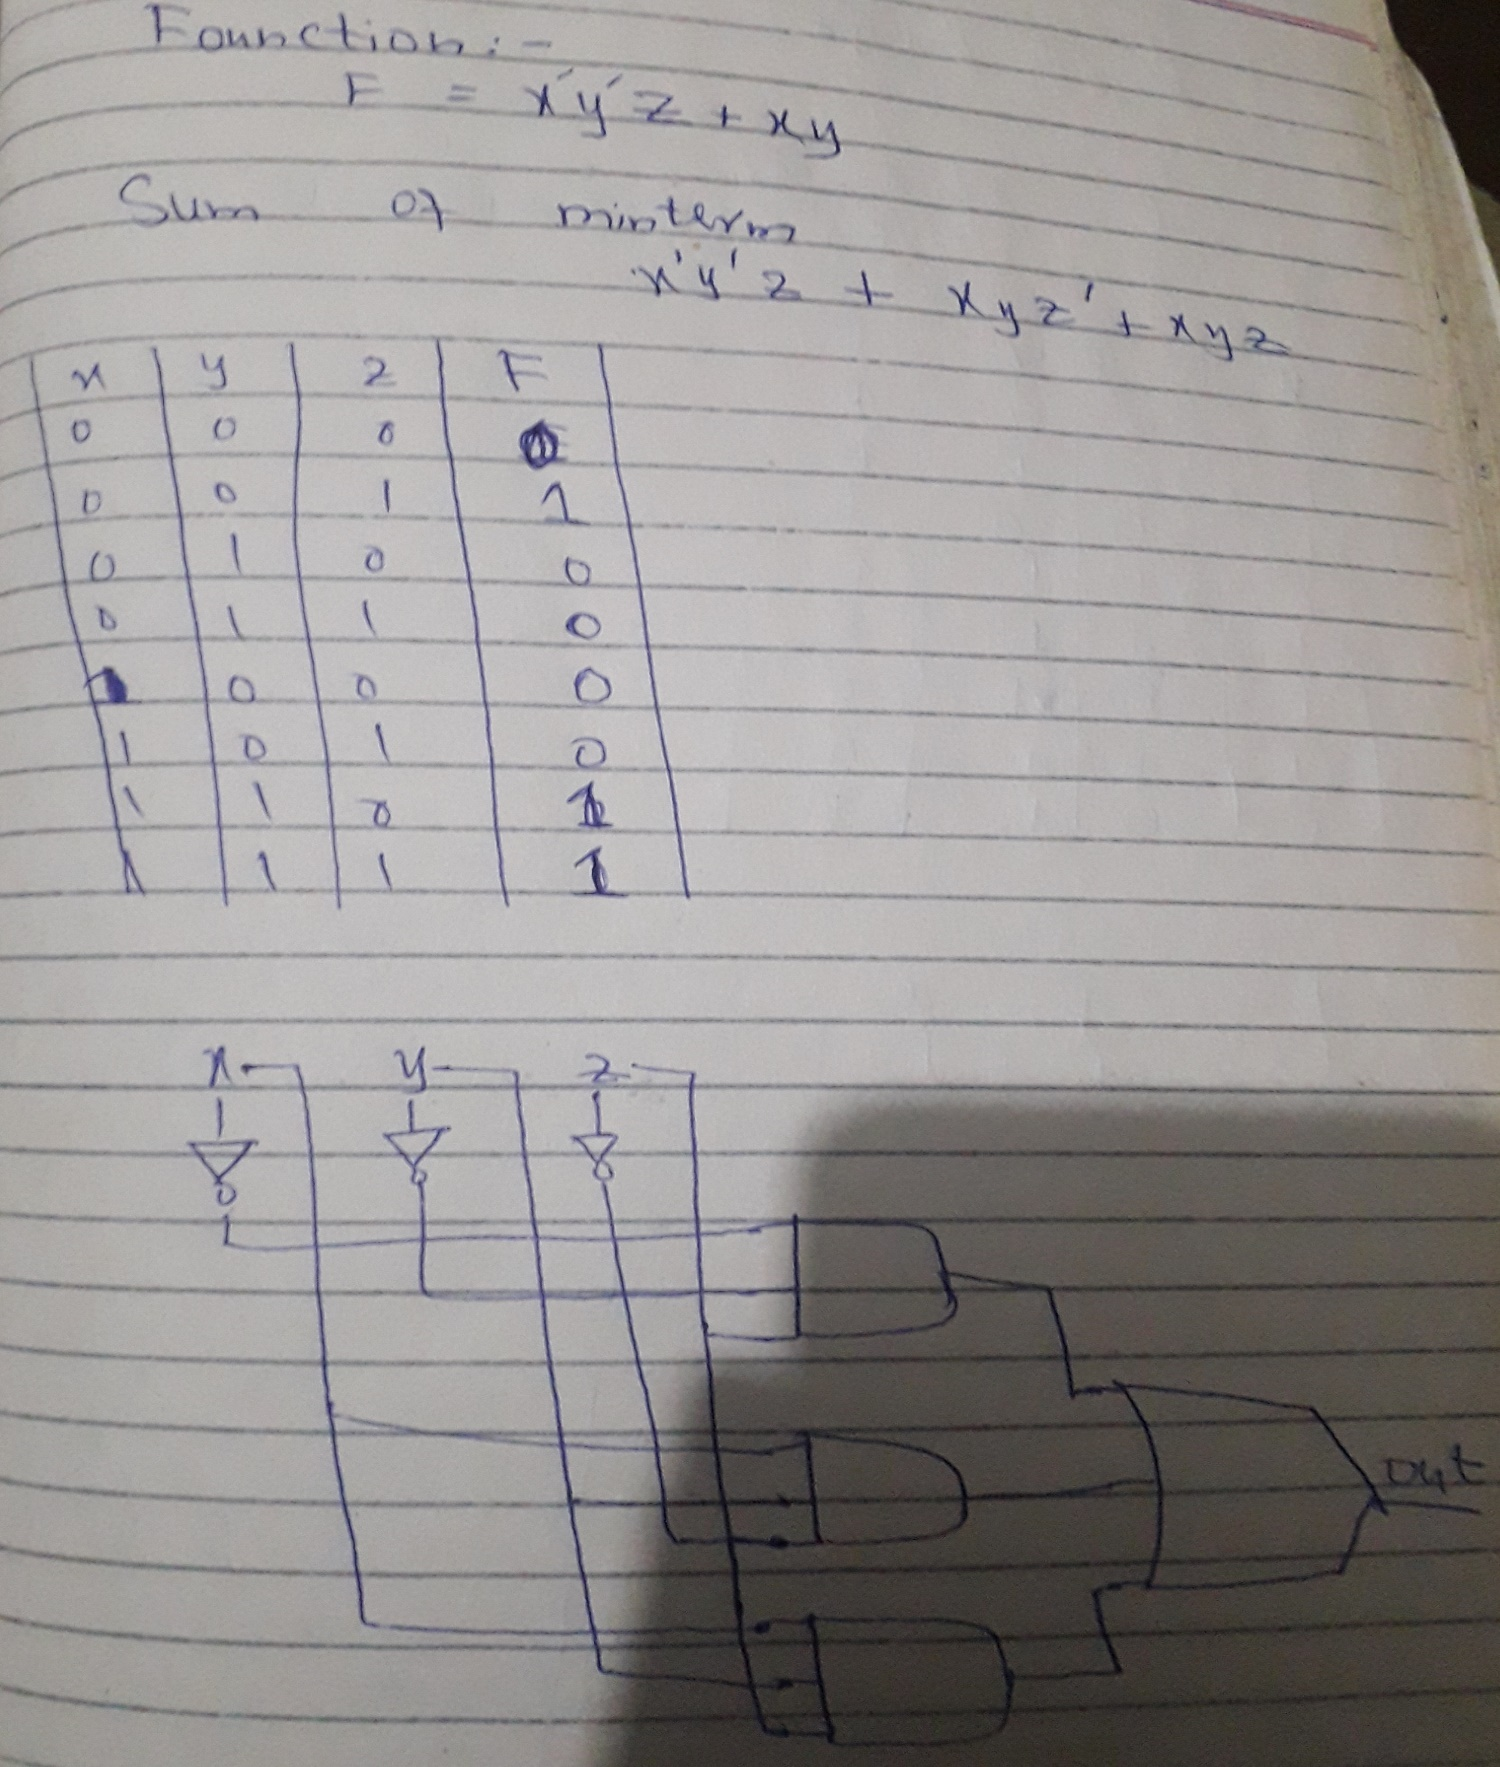 Founction:-
F = x'y'z + xy
Sum of minterm
x'y'z + xyz' + xyz
x y z F
0 0 0 0
0 0 1 1
0 1 0 0
0 1 1 0
1 0 0 0
1 0 1 0
1 1 0 1
1 1 1 1
x y z
out